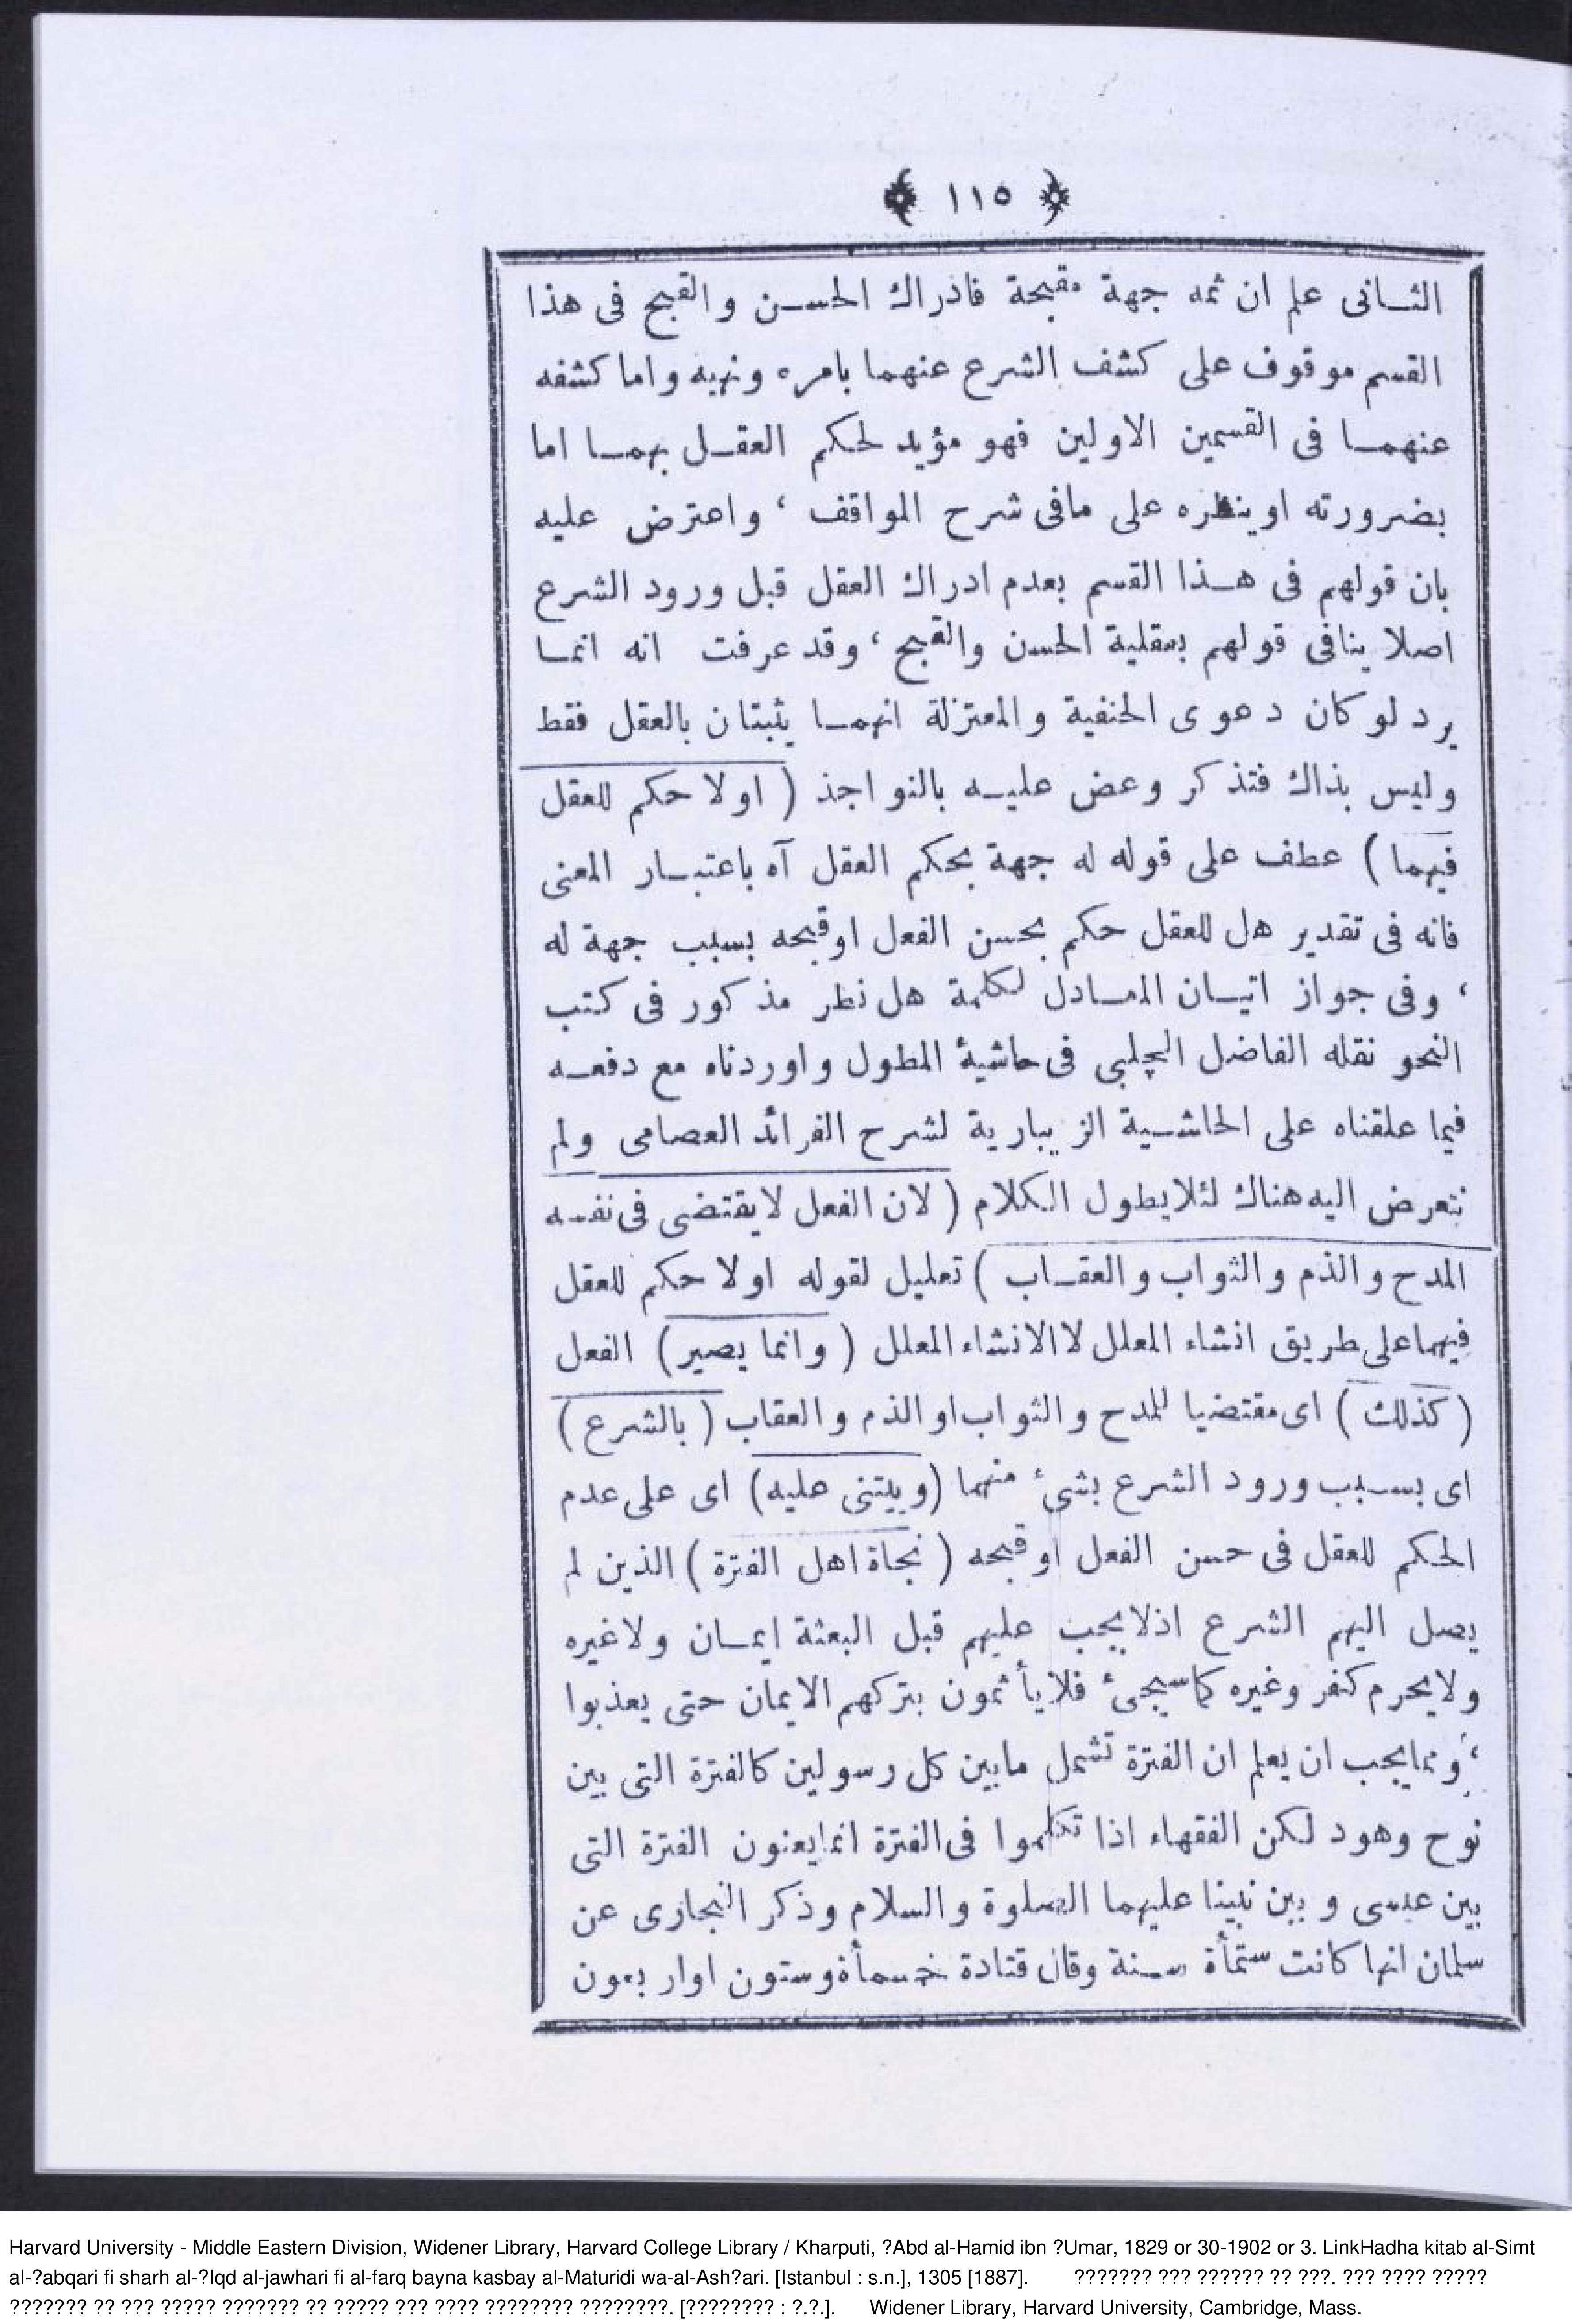 ﴿ ١١٥ ﴾
الثـانى علم ان ثمه جهة مقبحة فادراك الحسـن والقبح فى هذا
القسم موقوف على كشف الشرع عنهما بامره ونهيه واما كشفه
عنهمـا فى القسمين الاولين فهو مؤيد لحكم العقـل بهمـا اما
بضرورته او بنظره على مافى شرح المواقف ، واعترض عليه
بان قولهم فى هـذا القسم بعدم ادراك العقل قبل ورود الشرع
اصلا ينافى قولهم بعقلية الحسن والقبح ، وقد عرفت انه انمـا
يرد لو كان دعوى الحنفية والمعتزلة انهمـا يثبتان بالعقل فقط
وليس بذاك فتذكر وعض عليـه بالنواجذ ( اولا حكم للعقل
فيهما ) عطف على قوله له جهة يحكم العقل آه باعتبـار المعنى
فانه فى تقدير هل للعقل حكم بحسن الفعل او قبحه بسبب جهة له
، وفى جواز اتيـان المعـادل لكلمة هل نظر مذكور فى كتب
النحو نقله الفاضل الچلبى فى حاشية المطول واوردناه مع دفعـه
فيما علقناه على الحاشـية الزيبارية لشرح الفرائد العصامى ولم
نتعرض اليه هناك لئلا يطول الكلام ( لان الفعل لا يقتضى فى نفسه
المدح والذم والثواب والعقـاب ) تعليل لقوله اولا حكم للعقل
فيهما على طريق انشاء المعلل لا الانشاء المعلل ( وانما يصير ) الفعل
( كذلك ) اى مقتضيا للمدح والثواب او الذم والعقاب ( بالشرع )
اى بسـبب ورود الشرع بشئ منهما ( ويبتنى عليه ) اى على عدم
الحكم للعقل فى حسن الفعل او قبحه ( نجاة اهل الفترة ) الذين لم
يصل اليهم الشرع اذلا يجب عليهم قبل البعثة ايمـان ولا غيره
ولا يحرم كفر وغيره كما سيجئ فلا يأثمون بتركهم الايمان حتى يعذبوا
، ومما يجب ان يعلم ان الفترة تشمل مابين كل رسولين كالفترة التى بين
نوح وهود لكن الفقهاء اذا تكلموا فى الفترة انما يعنون الفترة التى
بين عيسى وبين نبينا عليهما الصلوة والسلام وذكر البخارى عن
سلمان انها كانت ستمأة سـنة وقال قتادة خمسمأة وستون او اربعون
Harvard University - Middle Eastern Division, Widener Library, Harvard College Library / Kharputi, ?Abd al-Hamid ibn ?Umar, 1829 or 30-1902 or 3. LinkHadha kitab al-Simt
al-?abqari fi sharh al-?Iqd al-jawhari fi al-farq bayna kasbay al-Maturidi wa-al-Ash?ari. [Istanbul : s.n.], 1305 [1887]. ??????? ??? ?????? ?? ???. ??? ???? ?????
??????? ?? ??? ????? ??????? ?? ????? ??? ???? ???????? ????????. [???????? : ?.?.]. Widener Library, Harvard University, Cambridge, Mass.